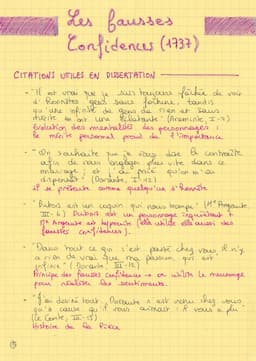 Les fausses
Confidences (1737)
CITATIONS UTILES EN DISSERTATION
- "Il est vrai que je suis toujours fâchée de voir
d'honnêtes gens sans fortune, tandis
qu'une infinité de gens de rien et sans
mérite en ont une éclatante" (Araminte, I-7)
Évolution des mentalités des personnages :
le mérite personnel prend de l'importance
- "On souhaite que je vous dise le contraire
afin de vous engager plus vite dans ce
mariage, et j'ai prié qu'on m'en
dispensât" (Dorante,
Il se présente comme quelqu'un d'honnête
- "Dubois est un coquin qui nous trompe" (Mme Argante,
Dubois est un personnage inquiétant
Mme Argante
fausses confidences).
- "Dans tout ce qui s'est passé chez vous, il n'y
a rien de vrai que ma passion qui est
infinie" (Dorante, III-12)
Principe des fausses confidences → on utilise le mensonge
pour révéler les sentiments.
- "J'ai deviné tout, Dorante n'est venu chez vous
qu'à cause qu'il vous aimait : il vous a plu"
(Le Comte, III-13)
Histoire de la Pièce